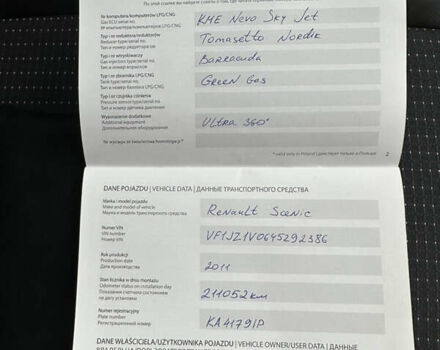 Nr komputera/komputerów LPG/CNG
Gas ECU serial no.
KME Nevo Sky Jet
Typ i nr reduktora/reduktorów
Reducer type/serial no.
Тип и номер редуктора ов
Tomasetto Nordik
Typ i nr wtryskiwaczy
Gas injectors type/serial no.
Тип и номер впрысков
Barracuda
Typ i nr zbiornika LPG/CNG
Tank type/serial no.
Тип и номер баллона LPG/CNG
Green Gas
Typ i nr czujnika ciśnienia
Pressure sensor type/serial no.
Тип и номер датчика давления
Wyposażenie dodatkowe
Additional equipment
Дополнительное оборудование
Ultra 360°
Nr wyciągu ze świadectwa homologacji *
* valid only in Poland | действует только в Польше
2
DANE POJAZDU | VEHICLE DATA | ДАННЫЕ ТРАНСПОРТНОГО СРЕДСТВА
Marka i model pojazdu
Make and model of vehicle
Марка и модель транспортного средства
Renault Scenic
Numer VIN
VIN number
Номер VIN
VF1JZ1V0645292386
Rok produkcji
Production date
Дата производства
2011
Stan licznika w dniu montażu
Odometer status on installation day
Показания счетчика состоянием
на дату установки
211052 км
Numer rejestracyjny
Plate number
Регистрационный номер
KA4179IP
DANE WŁAŚCICIELA/UŻYTKOWNIKA POJAZDU | VEHICLE OWNER/USER DATA | ДАННЫЕ